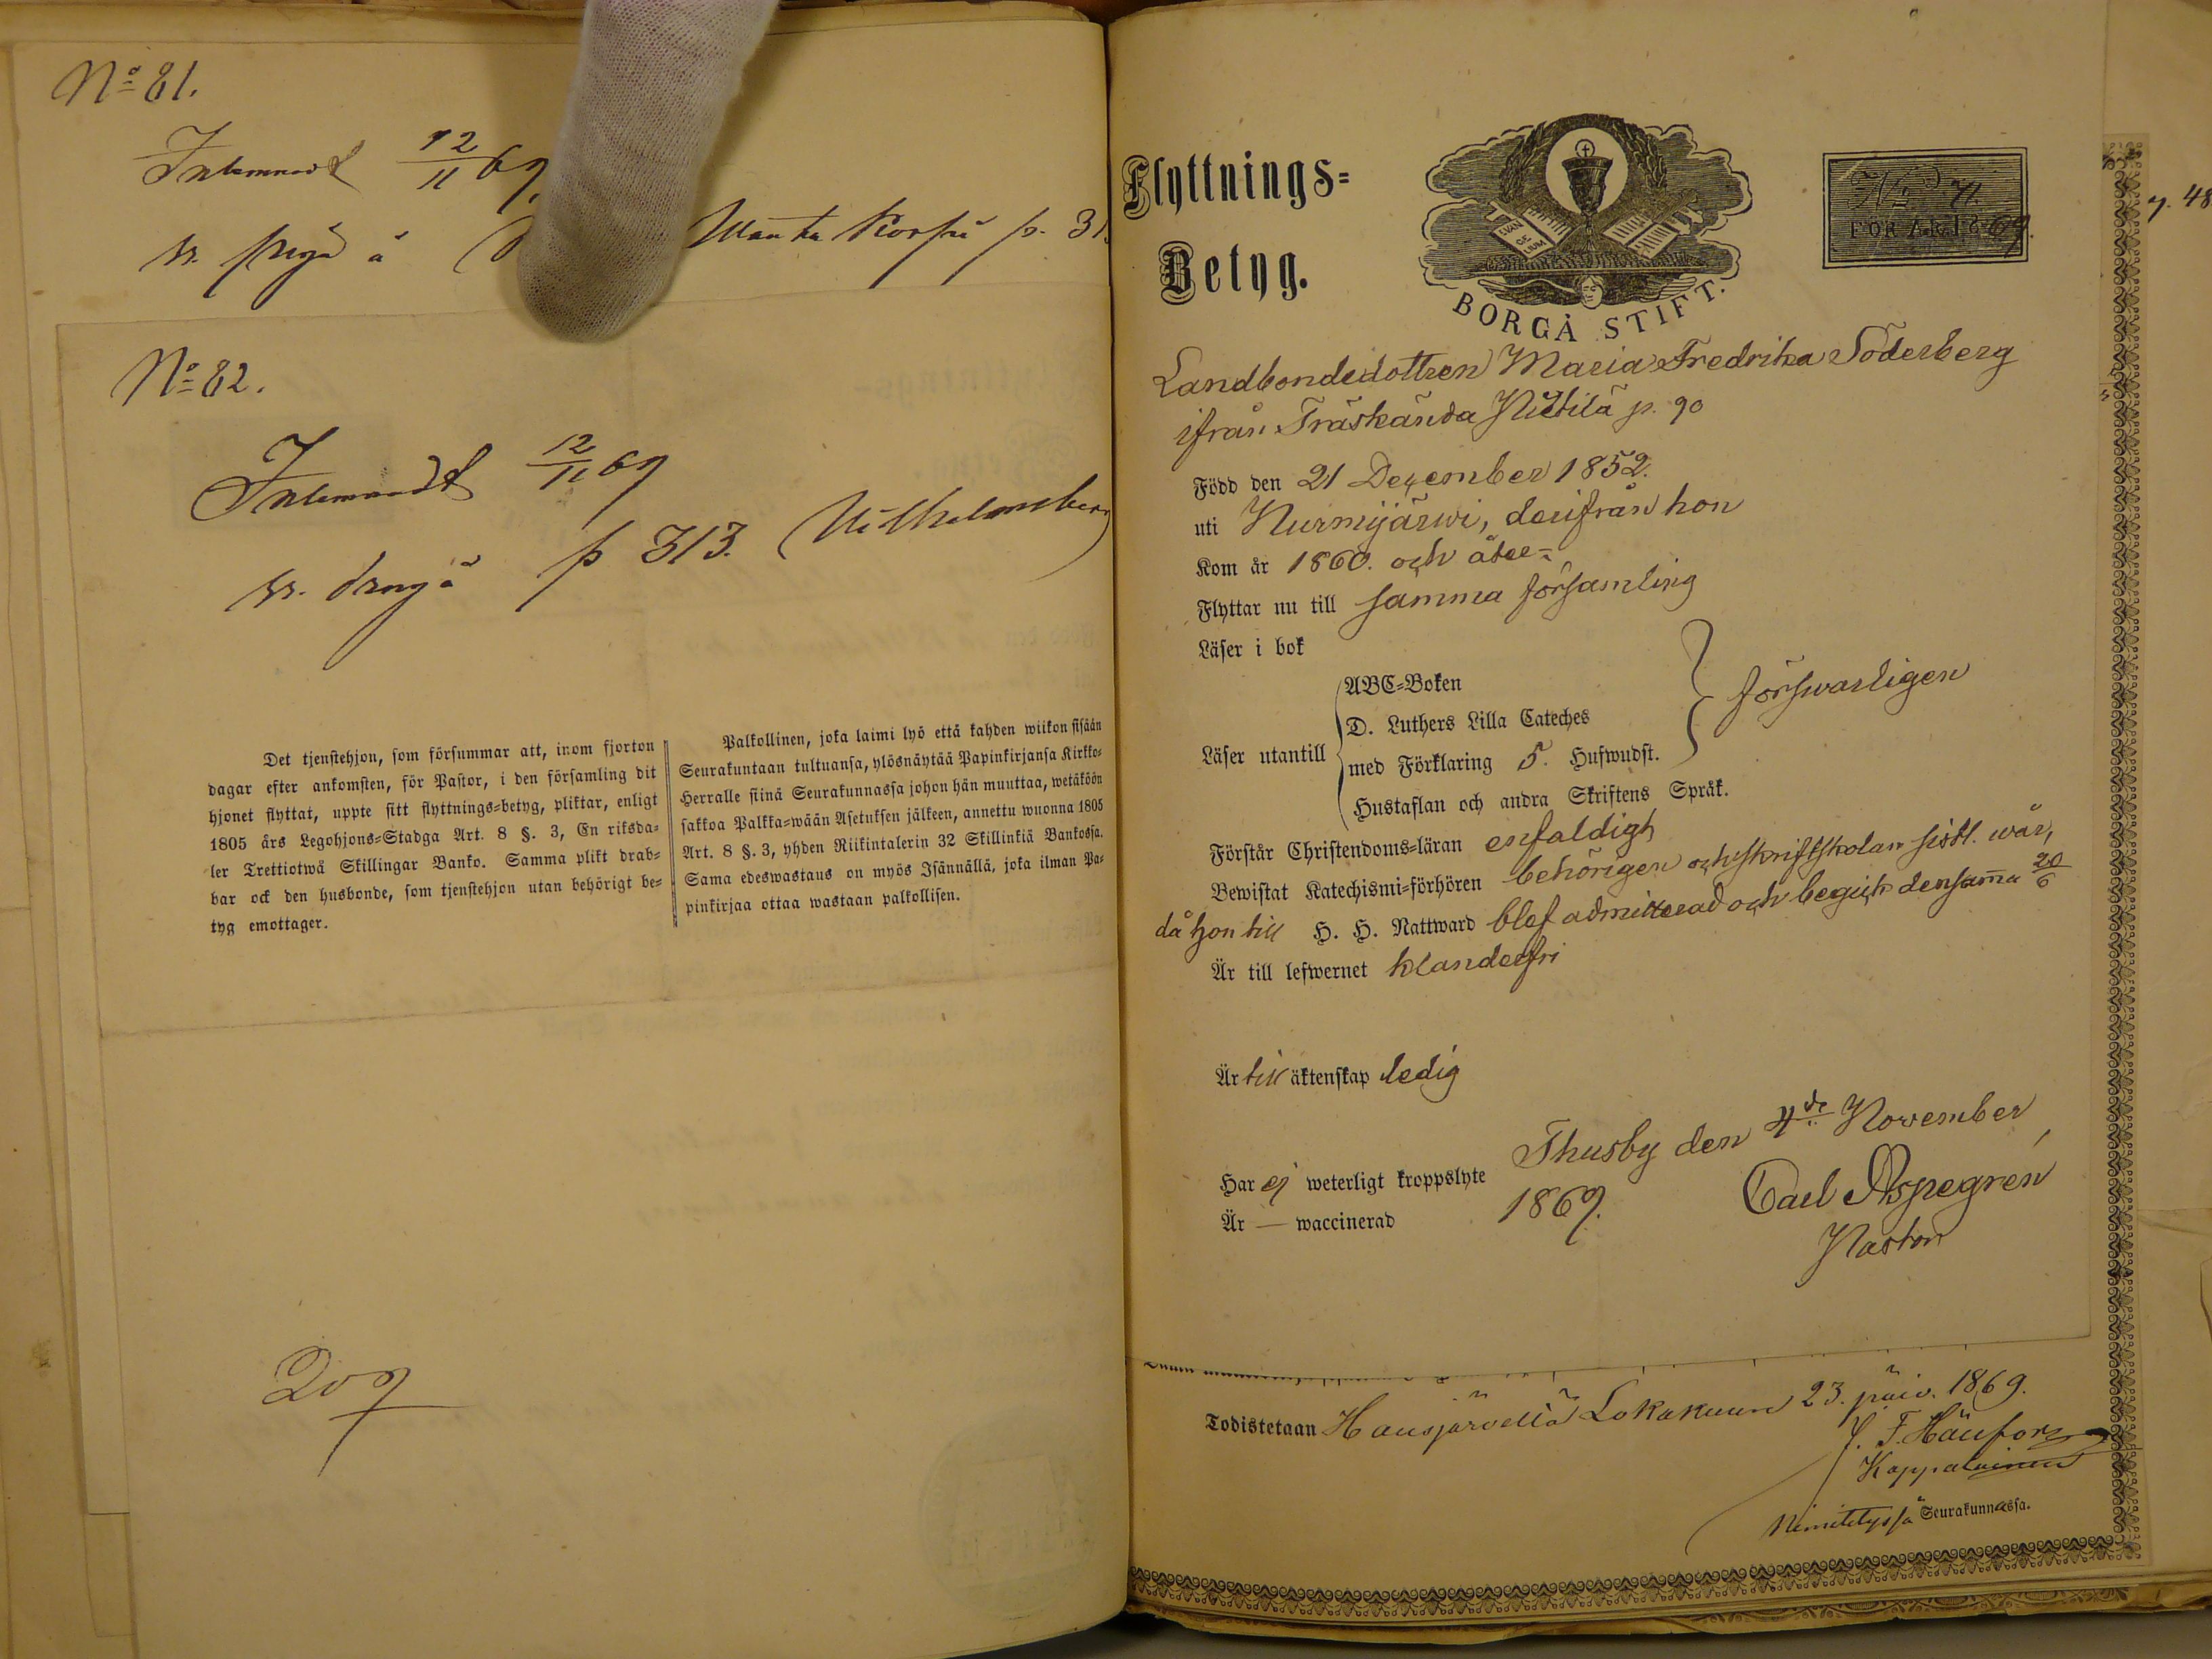 No 81.
Inlemnadt 12/11 69.
ss. piga å
Wanha Korpi p. 31
No 82.
Inlemnadt 12/11 69
ss. dräng å p 313. Wilhelmsberg
Det tjenstehjon, som försummar att, inom fjorton
dagar efter ankomsten, för Pastor, i den församling dit
hjonet flyttat, uppte sitt flyttnings=betyg, pliktar, enligt
1805 års Legohjons=Stadga Art. 8 §. 3, En riksda=
ler Trettiotwå Skillingar Banko. Samma plikt drab=
bar ock den husbonde, som tjenstehjon utan behörigt be=
tyg emottager.
Palkollinen, joka laimi lyö että kahden wiikon sisään
Seurakuntaan tultuansa, ylösnäytää Papinkirjansa Kirkko=
Herralle siinä Seurakunnassa johon hän muuttaa, wetäköön
sakkoa Palkka=wään Asetuksen jälkeen, annettu wuonna 1805
Art. 8 §. 3, yhden Riikintalerin 32 Skillinkiä Bankossa.
Sama edeswastaus on myös Isännällä, joka ilman Pa=
pinkirjaa ottaa wastaan palkollisen.
209
Flyttnings=
Betyg.
EVAN
GE
LIUM
BORGÅ STIFT.
FÖR ÅR 1869.
p. 48
Landbondedottren Maria Fredrika Söderberg
ifrån Träskända Nietilä p. 90
Född den 21 December 1852.
uti Nurmijärwi, derifrån hon
Kom år 1860. och åter=
Flyttar nu till samma församling
Läser i bok
Läser utantill
ABC=Boken
D. Luthers Lilla Cateches
med Förklaring 5. Hufwudst.
Hustaflan och andra Skriftens Språk.
försvarligen
Förstår Christendoms=läran enfaldigt
Bewistat Katechismi=förhören behörigen och skriftskolan sistl. wår,
då hon till H. H. Nattward blef admitterad och begick densamma 20/6
Är till lefwernet klanderfri
Är till äktenskap ledig
Har ej weterligt kroppslyte
Är — waccinerad
Thusby den 4de November
1869.
Carl Aspegren
Pastor
Todistetaan Hausjärvellä Lokakuun 23. päiv. 1869.
Kappalainen
Nimitetyssä Seurakunnassa.